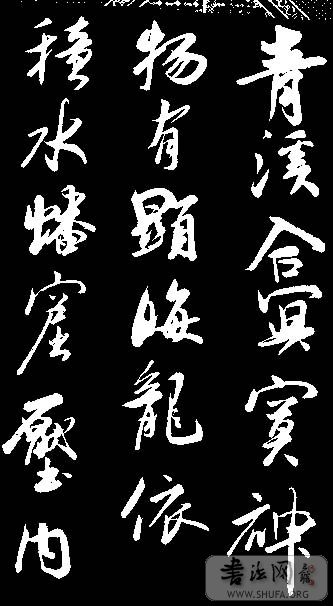 青溪合冥寞神
物有顯晦龍依
積水蟠窟壓內
书法网
WWW.SHUFA.ORG